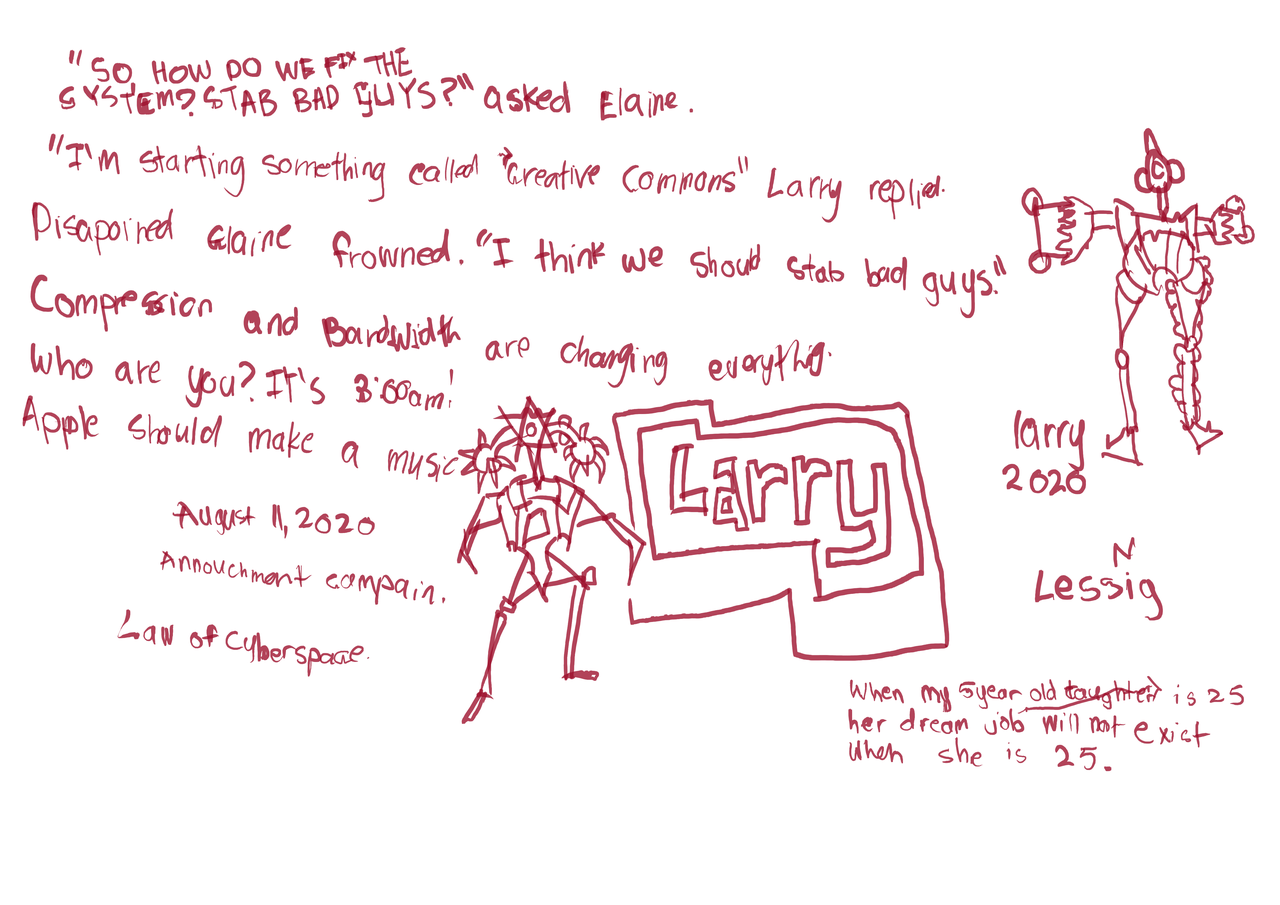 "SO HOW DO WE FIX THE
SYSTEM? STAB BAD GUYS?" asked Elaine.
"I'm starting something called "creative commons" Larry replied.
Disapoined Elaine frowned. "I think we should stab bad guys."
Compression and Bandwidth are changing everything.
Who are you? IT'S 3:00am!
Apple should make a music
August 11, 2020
Annouchment campain.
Law of Cyberspace.
Larry
larry
2020
N
Lessig
When my 5year old taughter is 25
her dream job will not exist
when she is 25.